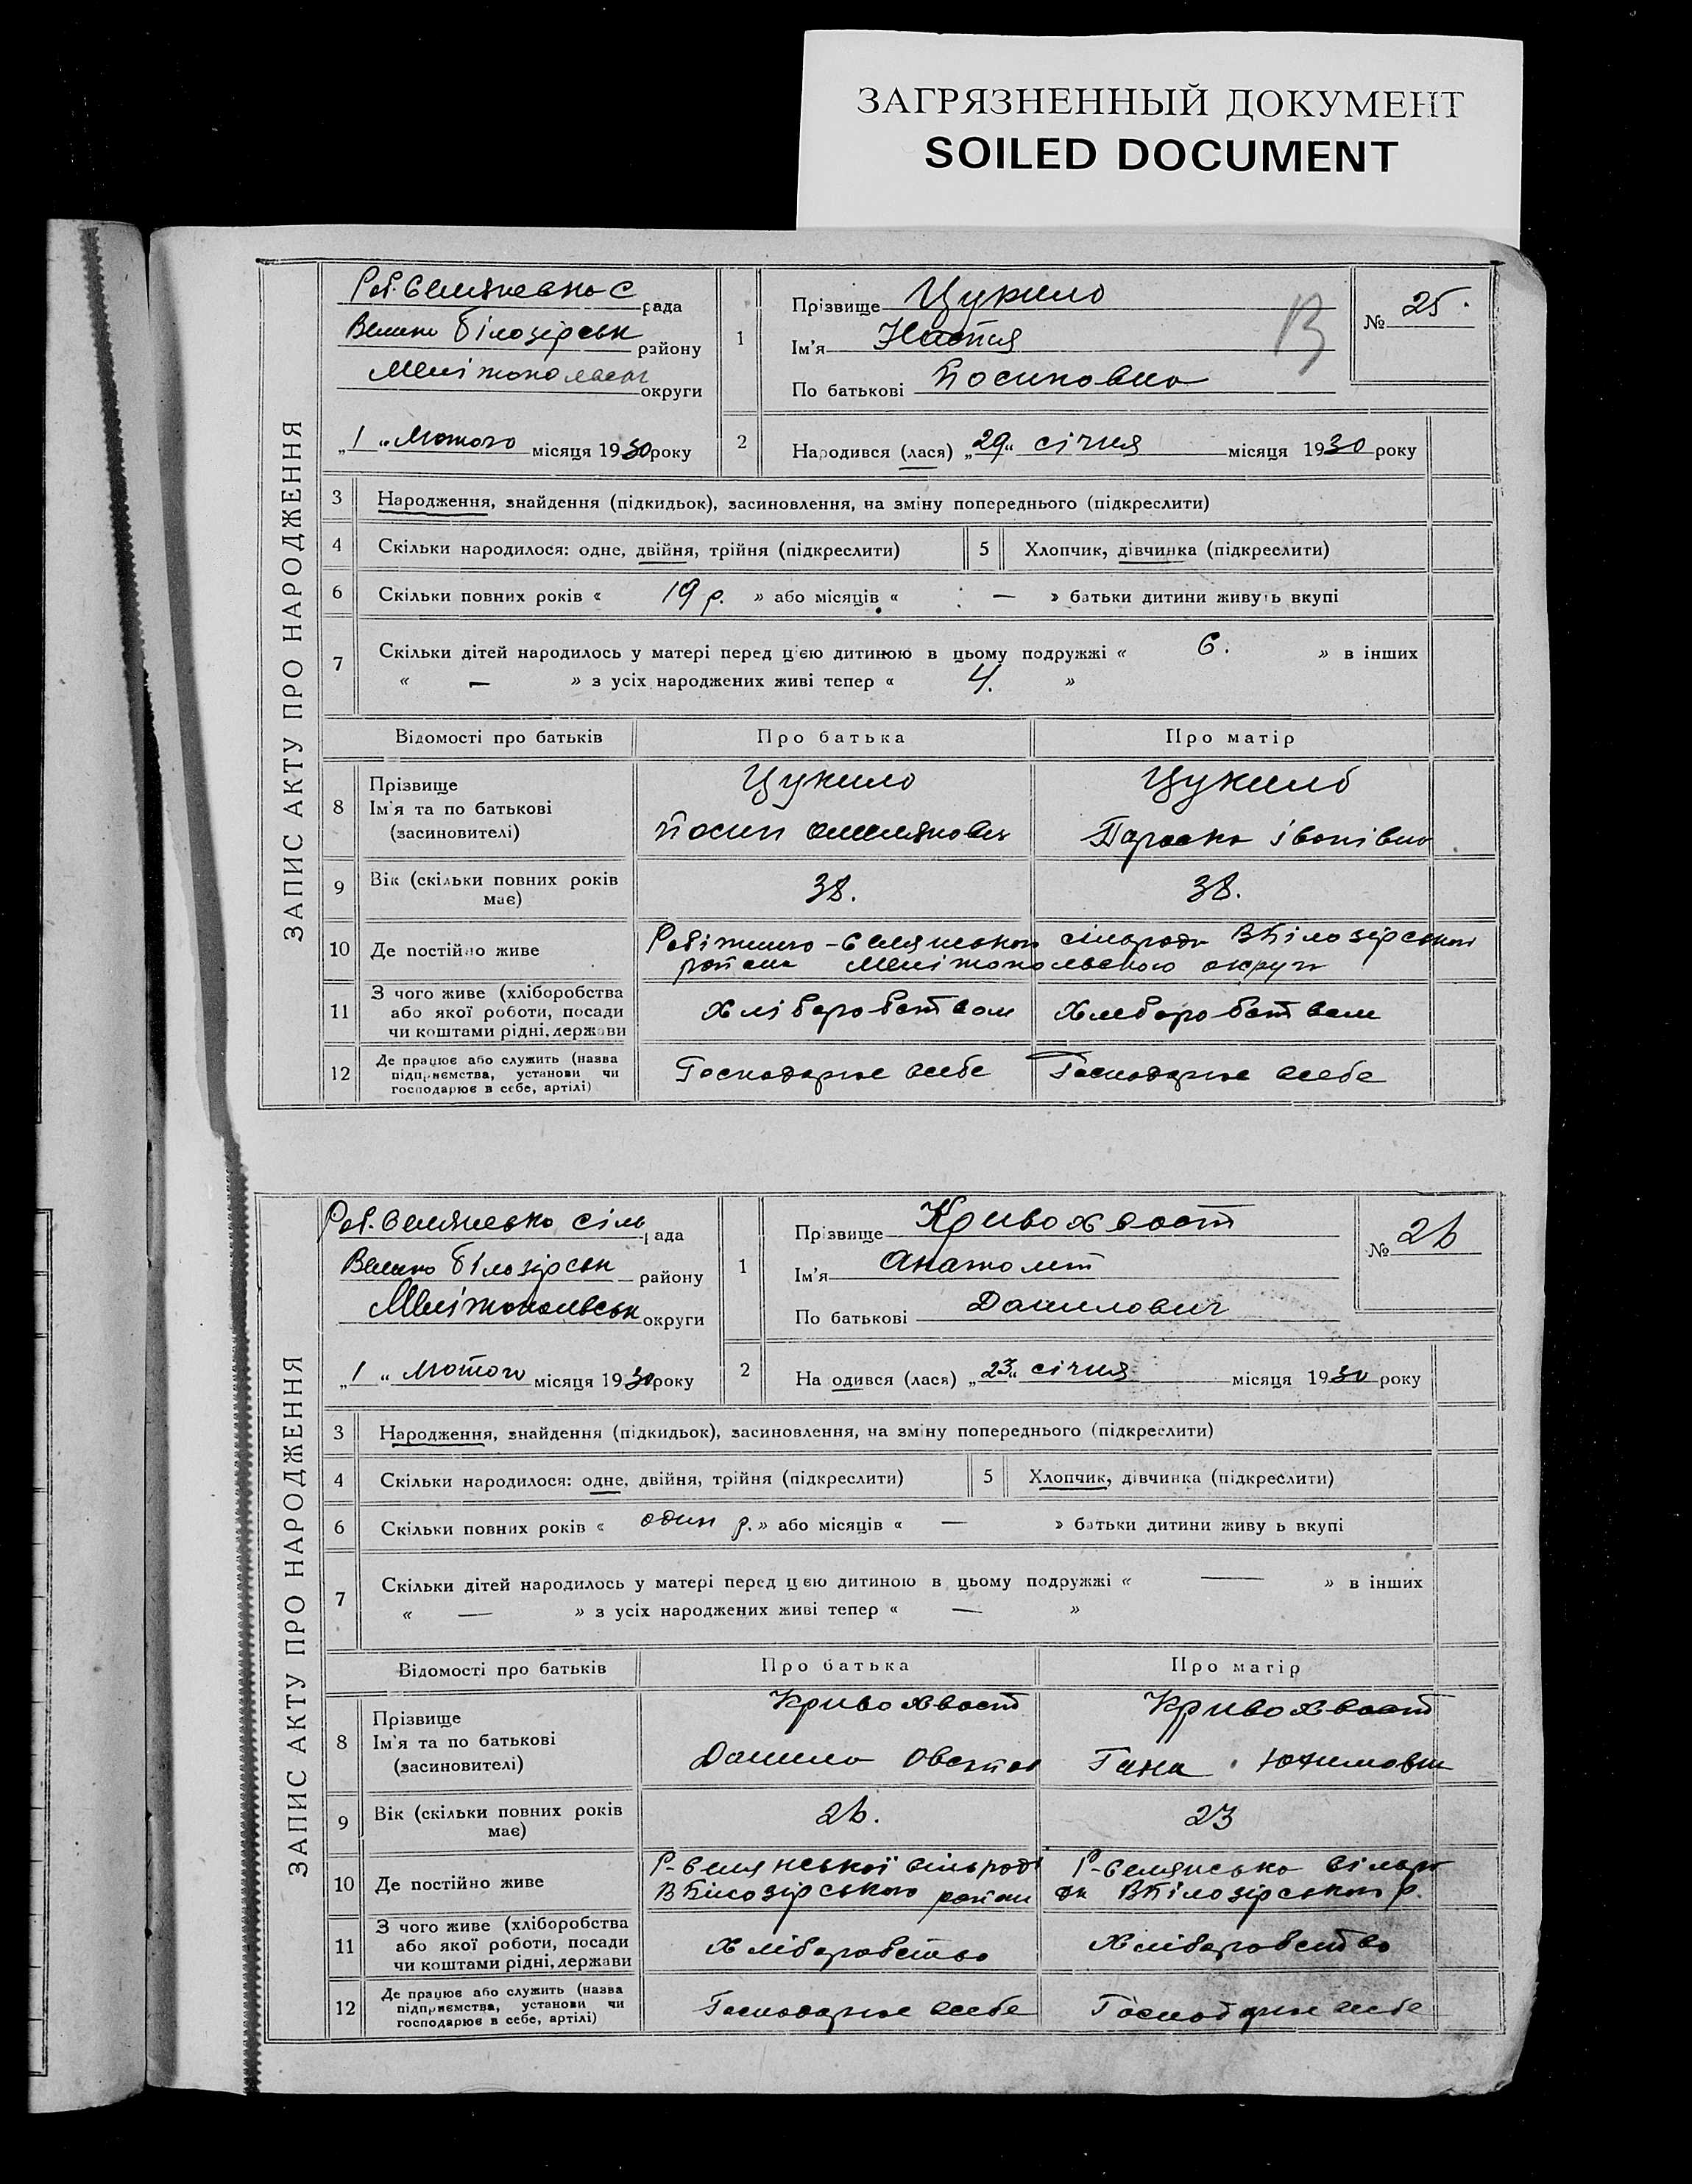 ЗАГРЯЗНЕННЫЙ ДОКУМЕНТ
SOILED DOCUMENT
ЗАПИС АКТУ ПРО НАРОДЖЕННЯ
рада
Велико Білозірськ району
округи
„1“ Лютого місяця 1930 року
1
Прізвище Цукило
Ім'я Настя
По батькові Йосиповна
№ 25.
В
2
Народився (лася) „29“ січня місяця 1930 року
3 Народження, знайдення (підкидьок), засиновлення, на зміну попереднього (підкреслити)
4 Скільки народилося: одне, двійня, трійня (підкреслити) 5 Хлопчик, дівчинка (підкреслити)
6 Скільки повних років « 19 р. » або місяців « — » батьки дитини живуть вкупі
7 Скільки дітей народилось у матері перед цією дитиною в цьому подружжі « 6. » в інших
« — » з усіх народжених живі тепер « 4. »
Відомості про батьків Про батька Про матір
8 Прізвище
Ім'я та по батькові
(засиновителі)
Цукило
Йосип Омелянович
Цукило
Параска Іванівна
9 Вік (скільки повних років має) 38. 38.
10 Де постійно живе
11 З чого живе (хліборобства
або якої роботи, посади
чи коштами рідні, держави
Хліборобством Хлеборобством
12 Де працює або служить (назва
підприємства, установи чи
господарює в себе, артілі)
Господарює всебе Господарює всебе
ЗАПИС АКТУ ПРО НАРОДЖЕННЯ
Роб. Селянсько сіль рада
Велико Білозірськ району
Мелітопольськ округи
„1“ Лютого місяця 1930 року
1
Прізвище Кривохвост
Ім'я Анатолій
По батькові Данилович
№ 26
2
Народився (лася) „23“ січня місяця 1930 року
3 Народження, знайдення (підкидьок), засиновлення, на зміну попереднього (підкреслити)
4 Скільки народилося: одне, двійня, трійня (підкреслити) 5 Хлопчик, дівчинка (підкреслити)
6 Скільки повних років « один р. » або місяців « — » батьки дитини живуть вкупі
7 Скільки дітей народилось у матері перед цією дитиною в цьому подружжі « — » в інших
« — » з усіх народжених живі тепер « — »
Відомості про батьків Про батька Про матір
8 Прізвище
Ім'я та по батькові
(засиновителі)
Кривохвост
Данило
Кривохвост
Ганна Юхимовн
9 Вік (скільки повних років має) 26. 23
10 Де постійно живе
Р-Селянської сільради
ВБілозірського району
Р-Селянсько сільра
ди ВБілозірського р.
11 З чого живе (хліборобства
або якої роботи, посади
чи коштами рідні, держави
Хліборобство Хліборобство
12 Де працює або служить (назва
підприємства, установи чи
господарює в себе, артілі)
Господарює всебе Господарює всебе